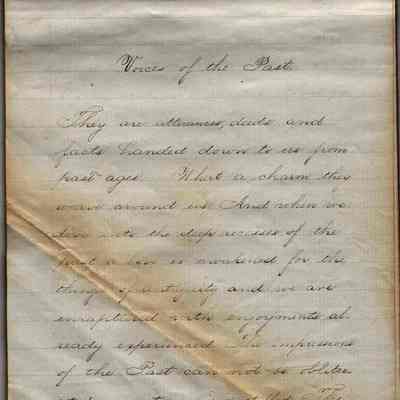 Voices of the Past.
They are utterances, deeds and
facts handed down to us from
past ages. What a charm they
weave around us. And when we
dive into the deep recesses of the
past a love is awakened for the
things of antiquity and we are
enraptured with enjoyments al-
ready experienced. The impressions
of the Past can not be oblite-